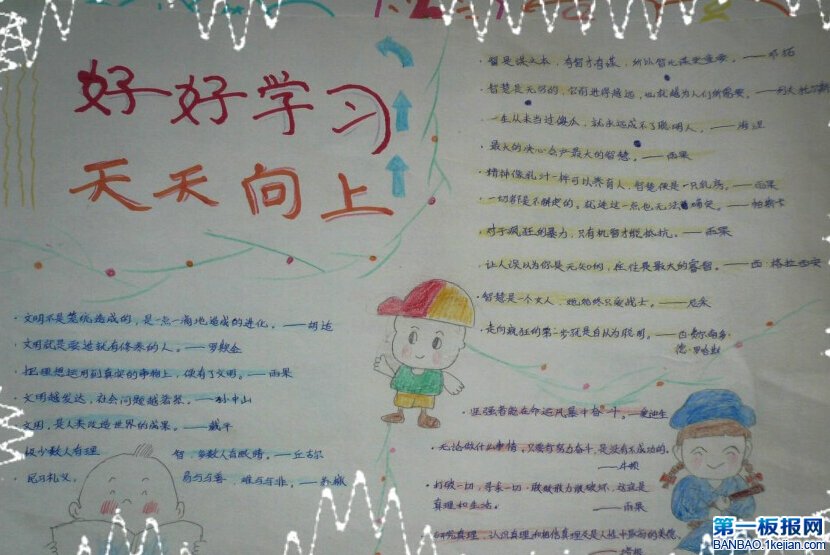 好好学习
天天向上
·智是谋之本，有智才有谋，所以智比谋更重要。——邓拓
·智慧是无穷的，它前进得越远，也就越为人们所需要。——列夫·托尔斯
一生从未当过傻瓜，就永远成不了聪明人。——海涅
·最大的决心会产最大的智慧。——雨果
·精神像乳汁一样可以养育人，智慧便是一只乳房。——雨果
·一切都是不确定的。就连这一点也无法确定。——帕斯卡
·对于疯狂的暴力，只有机智才能抵抗。——雨果
让人误以为你是无知时，往往是最大的睿智。——西·格拉西安
·智慧是一个女人，她始终只爱战士。——尼采
·走向疯狂的第一步就是自以为聪明。——西费尔南多·
德·罗哈斯
·文明不是笼统造成的，是一点一滴地造成的进化。——胡适
·文明就是要造就有修养的人。——罗斯金
·把理想运用到真实的事物上，便有了文明。——雨果
·文明越发达，社会问题越紧张。——孙中山
·文明，是人类改造世界的成果。——戴平
·极少数人有理智，多数人有眼睛。——丘吉尔
·民习礼义，易与与善，难与与非。——苏辙
·坚强者能在命运风暴中奋斗。——爱迪生
·无论做什么事情，只要肯努力奋斗，是没有不成功的。
——牛顿
·打破一切，寻求一切，敢做敢为敢破坏，这就是
真理和生活。——雨果
·研究真理，认识真理和相信真理及是人性中最高的美德。
——培根
第一板报网
BANBAO.1kejian.com